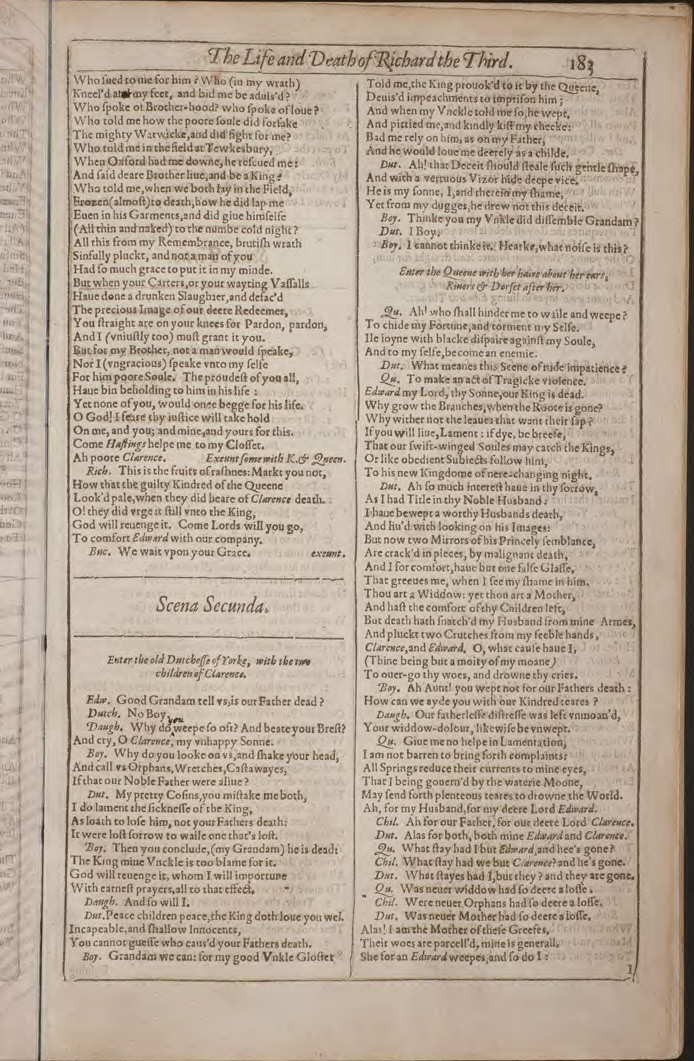 The Life and Death of Richard the Third. 183
Who sued to me for him? Who (in my wrath)
Kneel'd at my feet, and bid me be aduis'd?
Who spoke of Brother-hood? who spoke of loue?
Who told me how the poore soule did forsake
The mighty Warwicke, and did fight for me?
Who told me in the field at Tewkesbury,
When Oxford had me downe, he rescued me:
And said deare Brother liue, and be a King?
Who told me, when we both lay in the Field,
Frozen (almost) to death, how he did lap me
Euen in his Garments, and did giue himselfe
(All thin and naked) to the numbe cold night?
All this from my Remembrance, brutish wrath
Sinfully pluckt, and not a man of you
Had so much grace to put it in my minde.
But when your Carters, or your wayting Vassalls
Haue done a drunken Slaughter, and defac'd
The precious Image of our deere Redeemer,
You straight are on your knees for Pardon, pardon,
And I (vniustly too) must grant it you.
But for my Brother, not a man would speake,
Nor I (vngracious) speake vnto my selfe
For him poore Soule. The proudest of you all,
Haue bin beholding to him in his life:
Yet none of you, would once begge for his life.
O God! I feare thy iustice will take hold
On me, and you; and mine, and yours for this.
Come Hastings helpe me to my Closset.
Ah poore Clarence. Exeunt some with K. & Queen.
Rich. This is the fruits of rashnes: Markt you not,
How that the guilty Kindred of the Queene
Look'd pale, when they did heare of Clarence death.
O! they did vrge it still vnto the King,
God will reuenge it. Come Lords will you go,
To comfort Edward with our company.
Buc. We wait vpon your Grace. exeunt.
Scena Secunda.
Enter the old Dutchesse of Yorke, with the two
children of Clarence.
Edw. Good Grandam tell vs, is our Father dead?
Dutch. No Boy.
you
Daugh. Why do weepe so oft? And beate your Brest?
And cry, O Clarence, my vnhappy Sonne.
Boy. Why do you looke on vs, and shake your head,
And call vs Orphans, Wretches, Castawayes,
If that our Noble Father were aliue?
Dut. My pretty Cosins, you mistake me both,
I do lament the sicknesse of the King,
As loath to lose him, not your Fathers death:
It were lost sorrow to waile one that's lost.
Boy. Then you conclude, (my Grandam) he is dead:
The King mine Vnckle is too blame for it.
God will reuenge it, whom I will importune
With earnest prayers, all to that effect.
Daugh. And so will I.
Dut. Peace children peace, the King doth loue you wel.
Incapeable, and shallow Innocents,
You cannot guesse who caus'd your Fathers death.
Boy. Grandam we can: for my good Vnkle Gloster
Told me, the King prouok'd to it by the Queene,
Deuis'd impeachments to imprison him;
And when my Vnckle told me so, he wept,
And pittied me, and kindly kist my cheeke:
Bad me rely on him, as on my Father,
And he would loue me deerely as a childe.
Dut. Ah! that Deceit should steale such gentle shape,
And with a vertuous Vizor hide deepe vice.
He is my sonne, I, and therein my shame,
Yet from my dugges, he drew not this deceit.
Boy. Thinke you my Vnkle did dissemble Grandam?
Dut. I Boy.
Boy. I cannot thinke it. Hearke, what noise is this?
Enter the Queene with her haire about her ears,
Riuers & Dorset after her.
Qu. Ah! who shall hinder me to waile and weepe?
To chide my Fortune, and torment my Selfe.
Ile ioyne with blacke dispaire against my Soule,
And to my selfe, become an enemie.
Dut. What meanes this Scene of rude impatience?
Qu. To make an act of Tragicke violence.
Edward my Lord, thy Sonne, our King is dead.
Why grow the Branches, when the Roote is gone?
Why wither not the leaues that want their sap?
If you will liue, Lament: if dye, be breefe,
That our swift-winged Soules may catch the Kings,
Or like obedient Subiects follow him,
To his new Kingdome of nere-changing night.
Dut. Ah so much interest haue in thy sorrow,
As I had Title in thy Noble Husband:
I haue bewept a worthy Husbands death,
And liu'd with looking on his Images:
But now two Mirrors of his Princely semblance,
Are crack'd in pieces, by malignant death,
And I for comfort, haue but one false Glasse,
That greeues me, when I see my shame in him.
Thou art a Widdow: yet thou art a Mother,
And hast the comfort of thy Children left,
But death hath snatch'd my Husband from mine Armes,
And pluckt two Crutches from my feeble hands,
Clarence, and Edward. O, what cause haue I,
(Thine being but a moity of my moane)
To ouer-go thy woes, and drowne thy cries.
Boy. Ah Aunt! you wept not for our Fathers death:
How can we ayde you with our Kindred teares?
Daugh. Our fatherlesse distresse was left vnmoan'd,
Your widdow-dolour, likewise be vnwept.
Qu. Giue me no helpe in Lamentation,
I am not barren to bring forth complaints:
All Springs reduce their currents to mine eyes,
That I being gouern'd by the waterie Moone,
May send forth plenteous teares to drowne the World.
Ah, for my Husband, for my deere Lord Edward.
Chil. Ah for our Father, for our deere Lord Clarence.
Dut. Alas for both, both mine Edward and Clarence.
Qu. What stay had I but Edward, and hee's gone?
Chil. What stay had we but Clarence? and he's gone.
Dut. What stayes had I, but they? and they are gone.
Qu. Was neuer widdow had so deere a losse.
Chil. Were neuer Orphans had so deere a losse.
Dut. Was neuer Mother had so deere a losse.
Alas! I am the Mother of these Greefes,
Their woes are parcell'd, mine is generall.
She for an Edward weepes, and so do I:
I